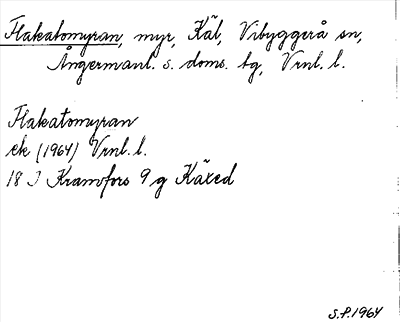 Flakatomyran, myr, Käl, Vibyggerå sn,
Ångermanl. s. doms. tg, Vrnl. l.
Flakatomyran
ek (1964) Vrnl. l.
18 J Kramfors 9 g Käxed
S.P. 1964